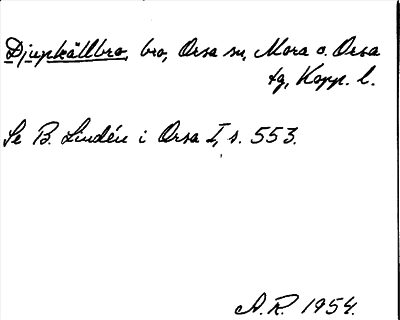 Djupkällbro, bro, Orsa sn, Mora o. Orsa
tg, Kopp. l.
Se B. Lindén i Orsa I, s. 553.
A. R. 1954.